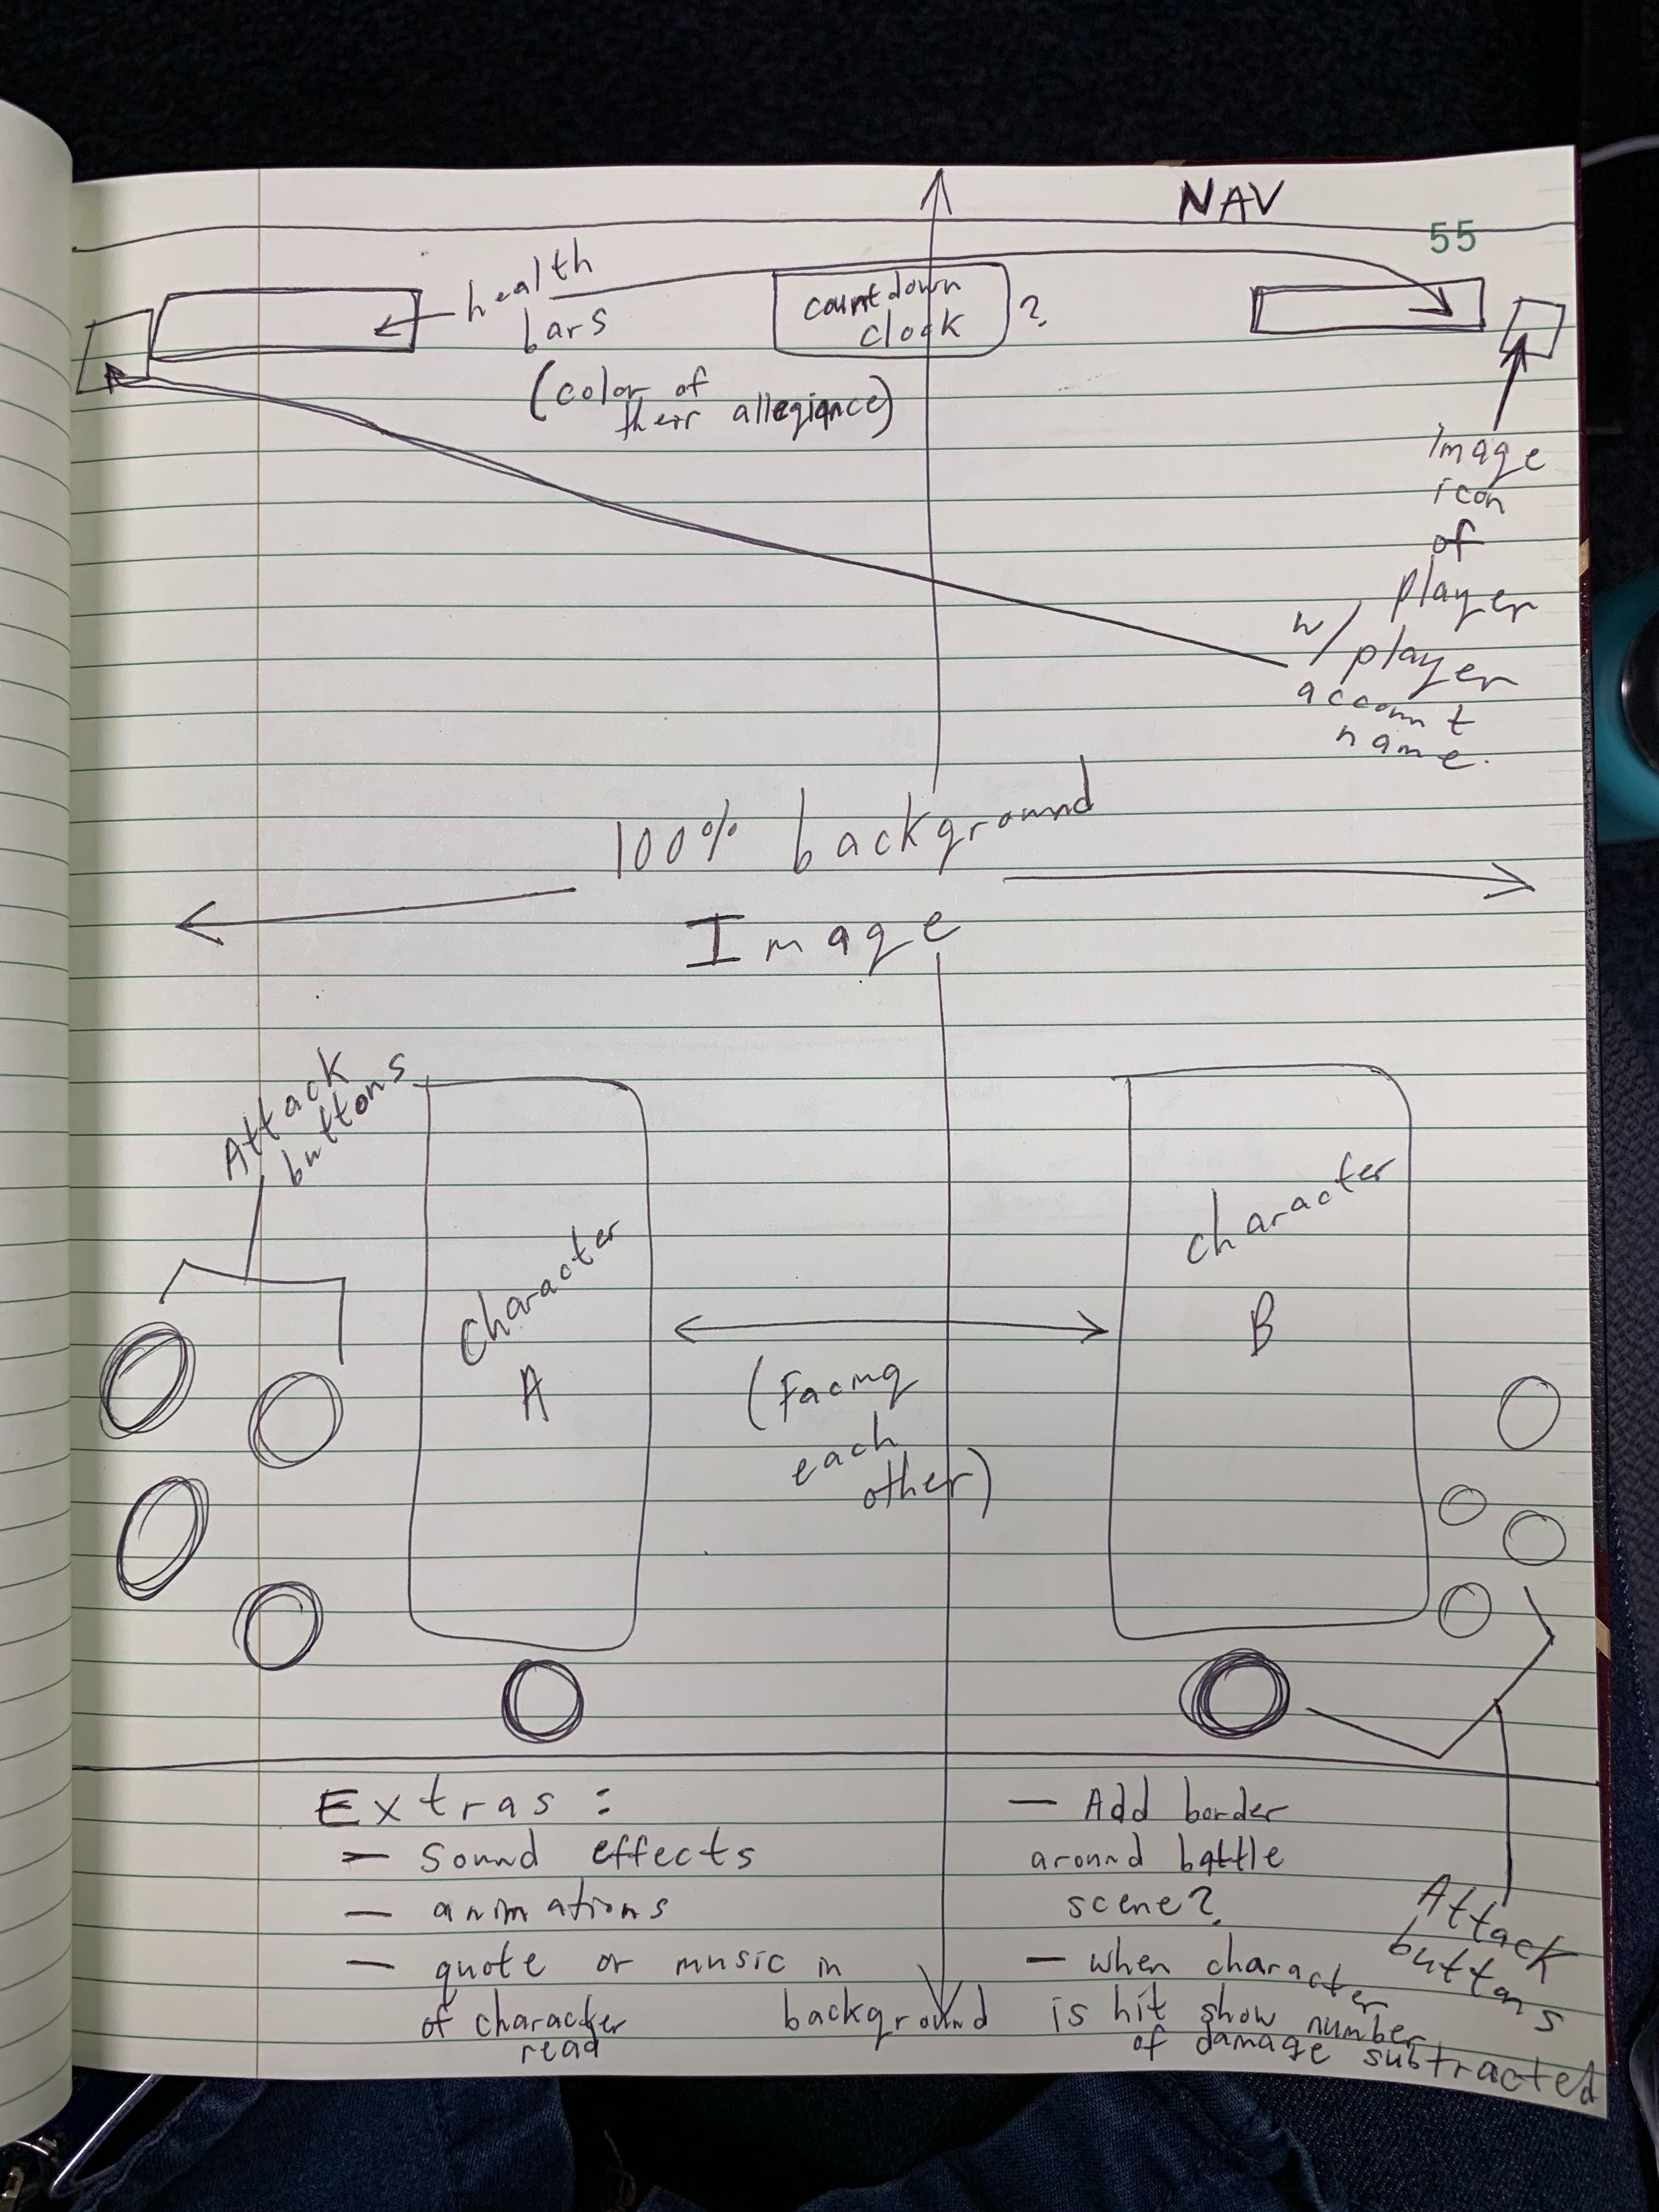 NAV
55
health
bars
(color of
their allegiance)
countdown
clock
?
Image
icon
of
player
w/ player
account
name.
100% background
Image
Attack
buttons
Character
A
Character
B
(Facing
each
other)
Extras :
— Sound effects
— animations
— quote or music in
of character background
read
— Add border
around battle
scene?
— when character
is hit show number
of damage subtracted
Attack
buttons